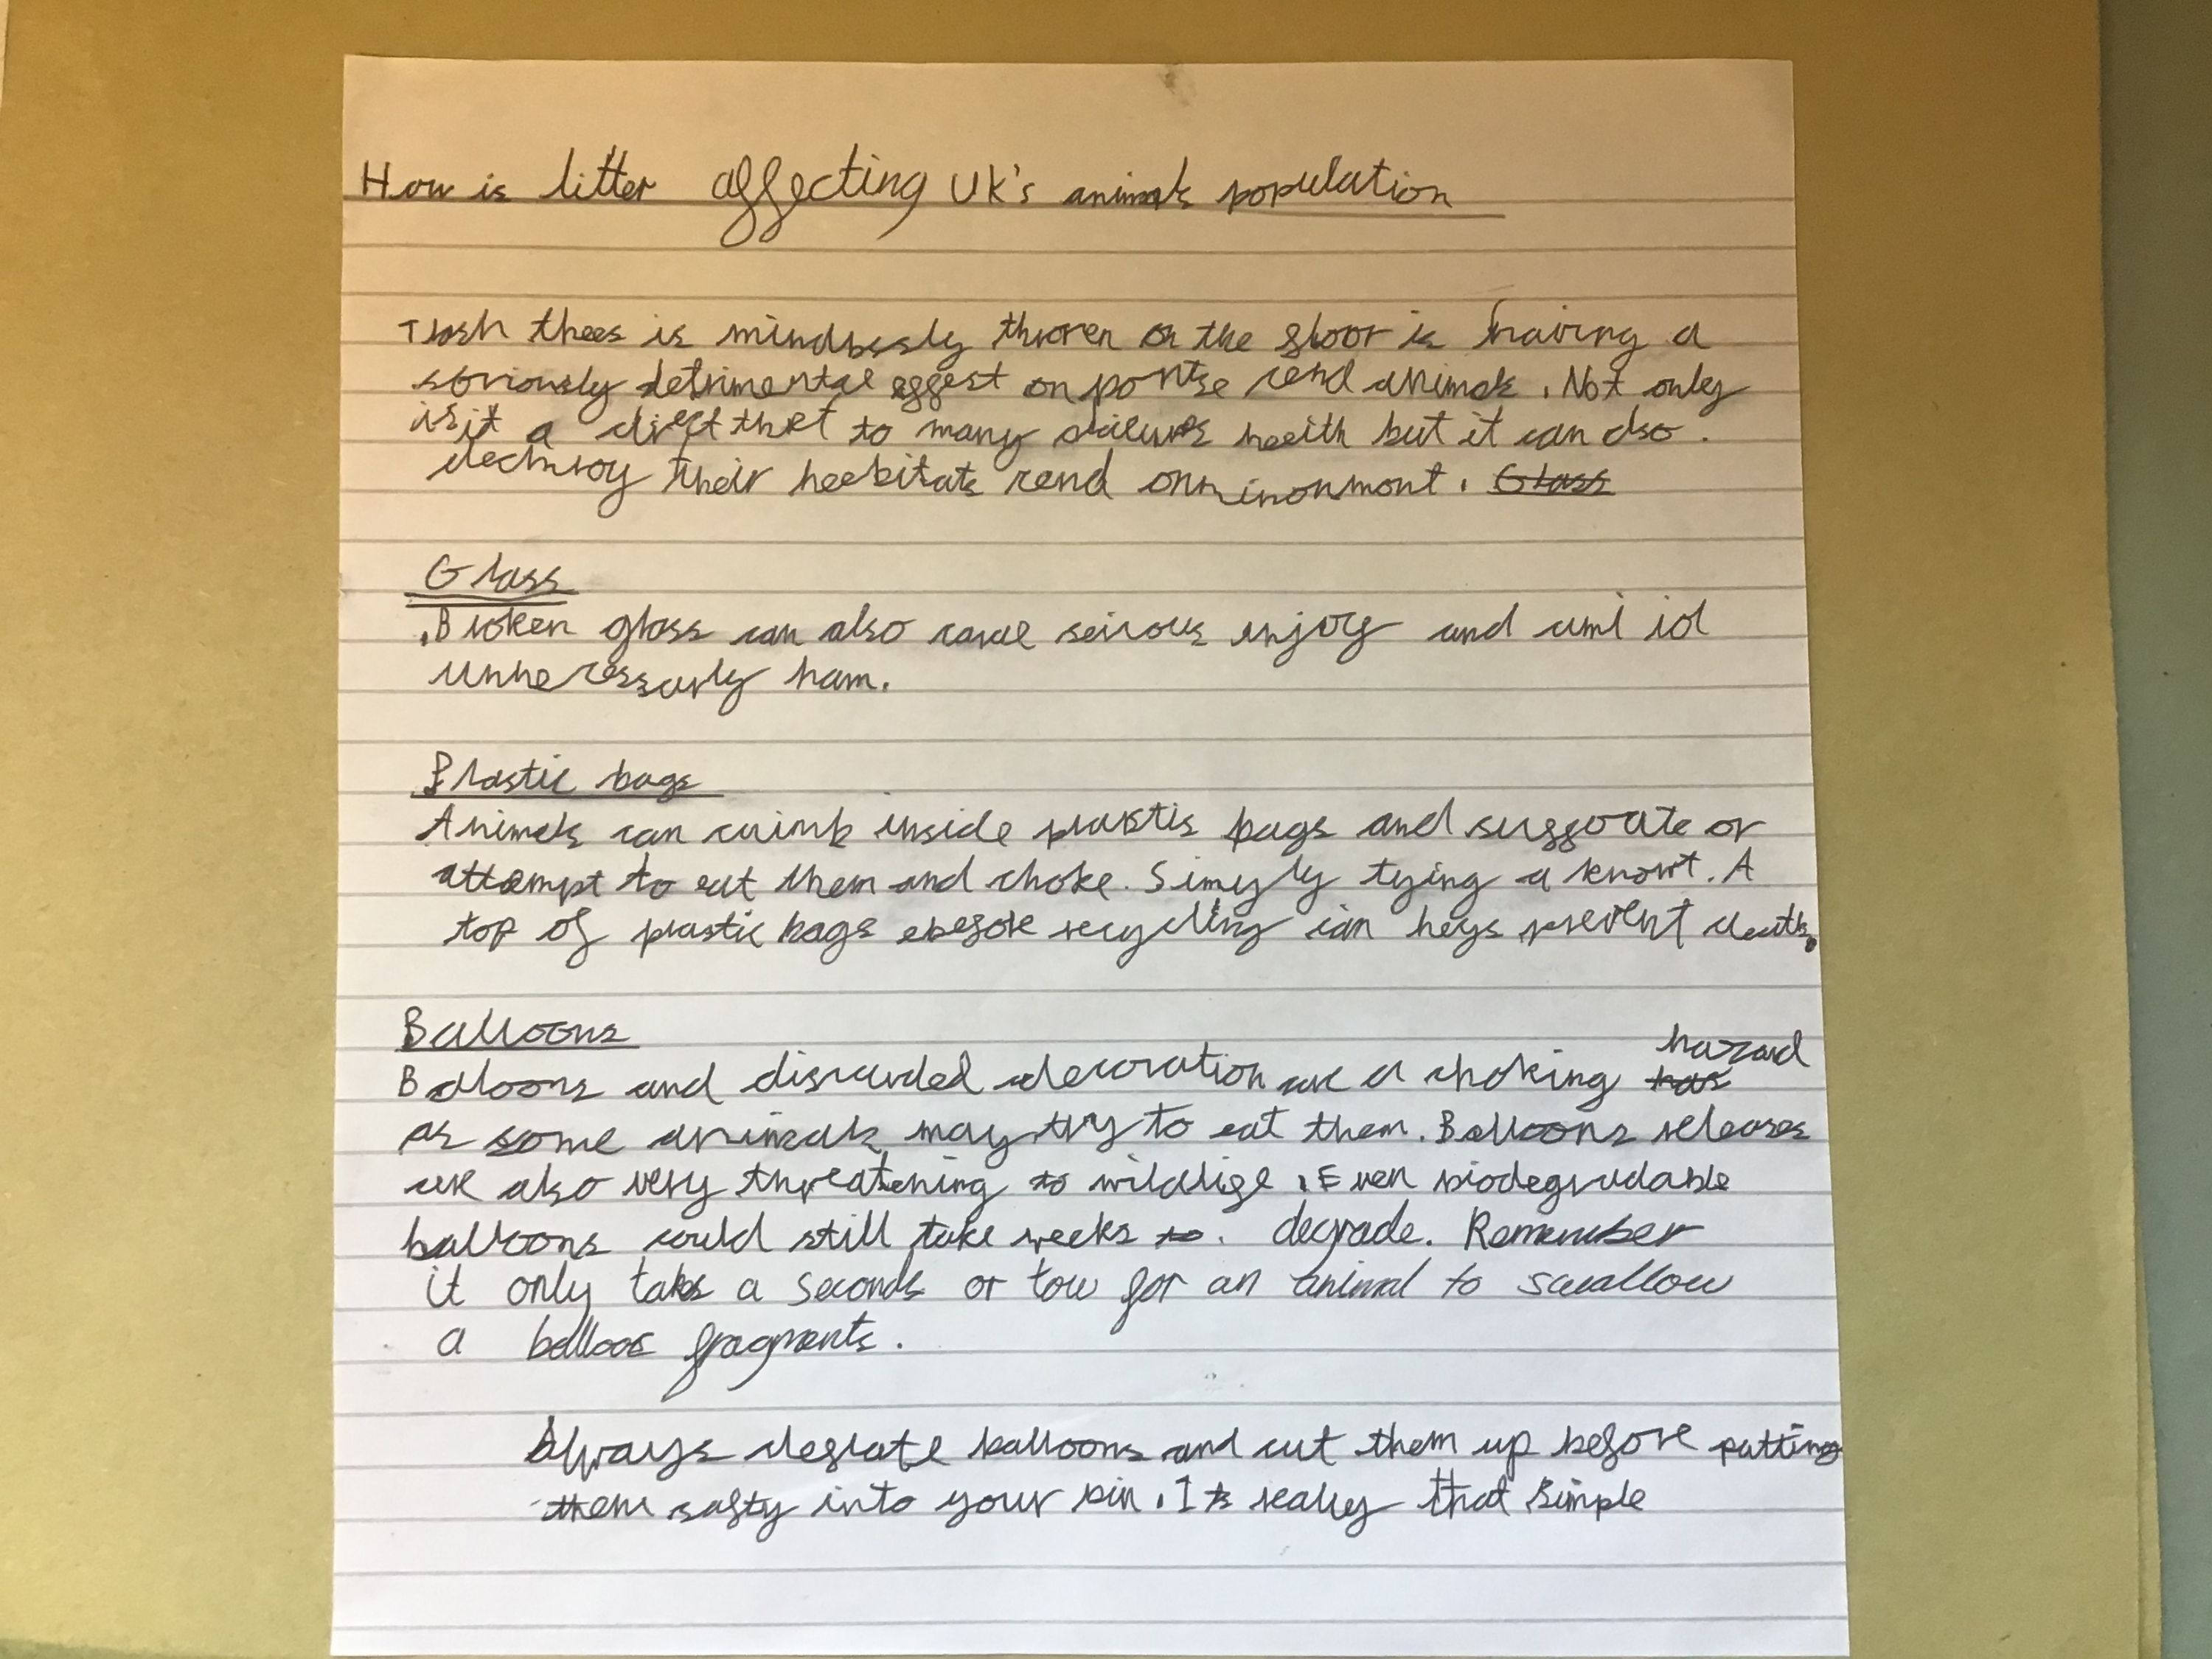 How is litter affecting UK's animals population
Trash thees is mindlessly thrown on the floor is having a
obviously detrimental effest on and animals. Not only
is it a to many health but it can also.
their and . Glass
Glass
.Broken glass can also cause seirous enjory and
unnecessarly ham.
Plastic bags
Animals can climb inside plastic bags and suffocate or
attempt to eat them and choke. Simply tying a knowt. A
top of plastic bags before recycling can prevent death.
Balloons
hazard
Balloons and discarded decoration are a choking has
as some animals may try to eat them. Balloons releases
are also very threatening to wildlife. Even biodegradable
balloons could still take weeks to. degrade. Remember
it only takes a seconds or tow for an animal to swallow
a balloos fragments.
Always deflate balloons and cut them up before putting
them safty into your bin. Its really that simple